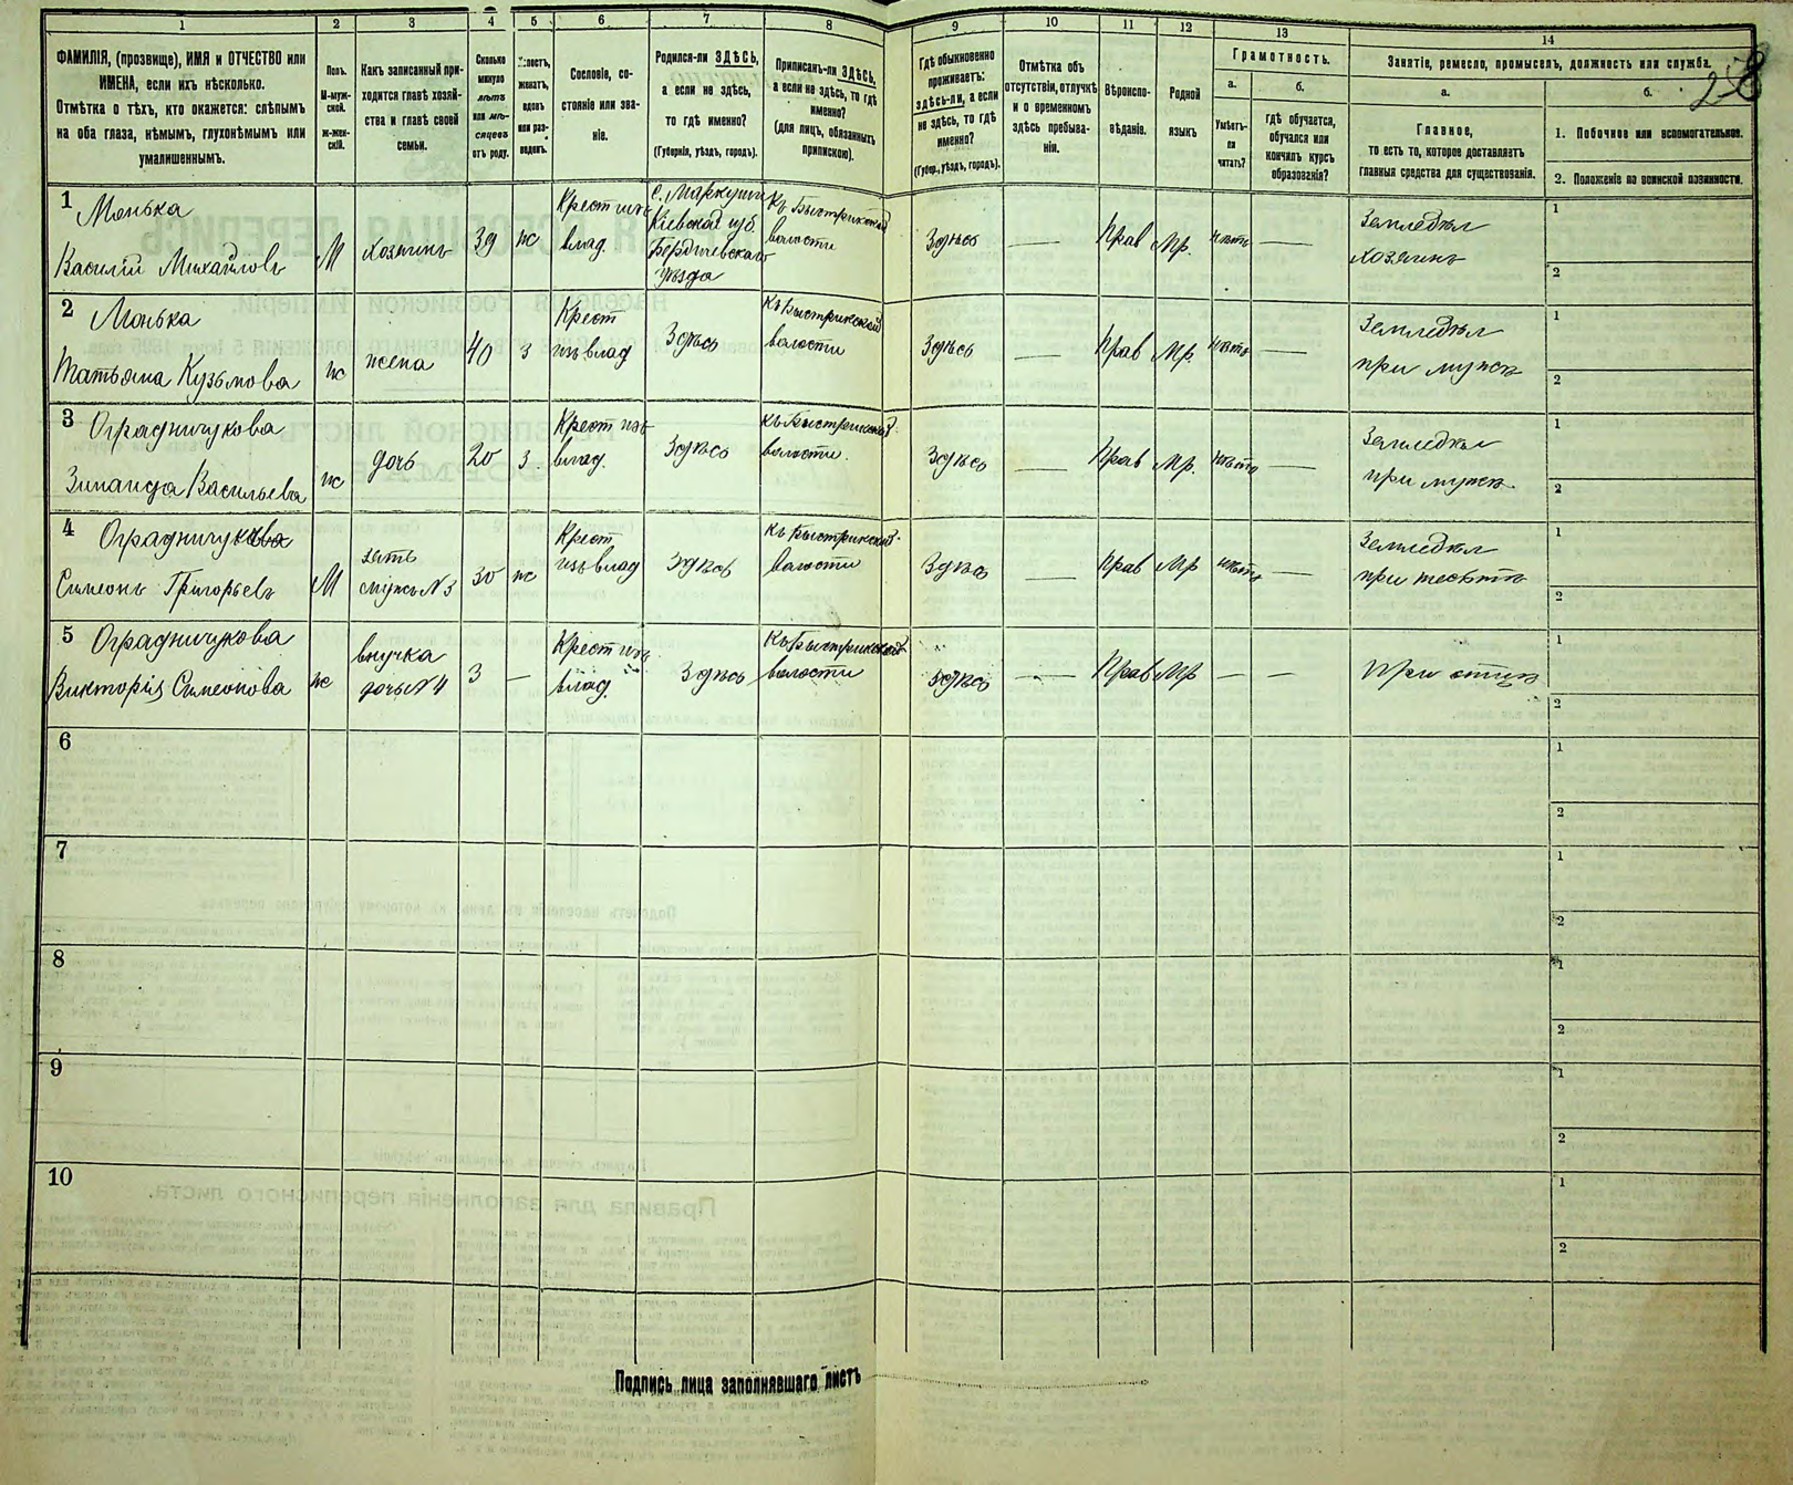 1 2 3 4 5 6 7 8 9 10 11 12 13 14
ФАМИЛІЯ, (прозвище), ИМЯ и ОТЧЕСТВО или
ИМЕНА, если ихъ нѣсколько.
Отмѣтка о тѣхъ, кто окажется: слѣпымъ
на оба глаза, нѣмымъ, глухонѣмымъ или
умалишеннымъ.
Полъ.
М-муж-
ской.
Ж-жен-
скій.
Какъ записанный при-
ходится главѣ хозяй-
ства и главѣ своей
семьи.
Сколько
минуло
лѣтъ
или мѣ-
сяцевъ
отъ роду.
Холостъ,
женатъ,
вдовъ
или раз-
веденъ.
Сословіе, со-
стояніе или зва-
ніе.
Родился-ли ЗДѢСЬ,
а если не здѣсь,
то гдѣ именно?
(Губернія, уѣздъ, городъ).
Приписанъ-ли ЗДѢСЬ,
а если не здѣсь, то гдѣ
именно?
(для лицъ, обязанныхъ
припискою).
Гдѣ обыкновенно
проживаетъ:
здѣсь-ли, а если
не здѣсь, то гдѣ
именно?
(Губер., уѣздъ, городъ).
Отмѣтка объ
отсутствіи, отлучкѣ
и о временномъ
здѣсь пребыва-
ніи.
Вѣроиспо-
вѣданіе.
Родной
языкъ
Грамотность.
а.
Умѣетъ-
ли
читать?
б.
гдѣ обучается,
обучался или
кончилъ курсъ
образованія?
Занятіе, ремесло, промыселъ, должность или служба.
а.
Главное,
то есть то, которое доставляетъ
главныя средства для существованія.
б.
1. Побочное или вспомогательное.
2. Положеніе по воинской повинности.
1 Монька
Василій Михайловъ
М
хозяинъ
39
ж
Крест изъ
влад.
с. Маркуши
Кіевской губ.
Бердичевскаго
уѣзда
Къ Быстрикской
волости
Здѣсь
—
Прав
Мр.
нѣтъ
—
Земледѣл
хозяинъ
1
2
2 Монька
Татьяна Кузьмова
ж
жена
40
з
Крест
изъ влад
Здѣсь
Къ Быстрикской
волости
Здѣсь
—
Прав
Мр.
нѣтъ
—
Земледѣл
при мужѣ
1
2
3 Оградничукова
Зинаида Васильева
ж
дочь
20
з.
Крест изъ
влад.
Здѣсь
Къ Быстрикской
волости.
Здѣсь
—
Прав
Мр.
нѣтъ
—
Земледѣл
при мужѣ
1
2
4 Оградничукъ
Симеонъ Григорьевъ
М
зять
мужъ N 3
30
ж
Крест
изъ влад
Здѣсь
Къ Быстрикской
волости
Здѣсь
—
Прав
Мр
нѣтъ
—
Земледѣл
при тестѣ
1
2
5 Оградничукова
Викторія Симеонова
ж
внучка
дочь N 4
3
—
Крест изъ
влад.
Здѣсь
Къ Быстрикской
волости
Здѣсь
—
Прав
Мр
—
—
При отцѣ
1
2
6
1
2
7
1
2
8
1
2
9
1
2
10
1
2
Подпись лица заполнявшаго листъ